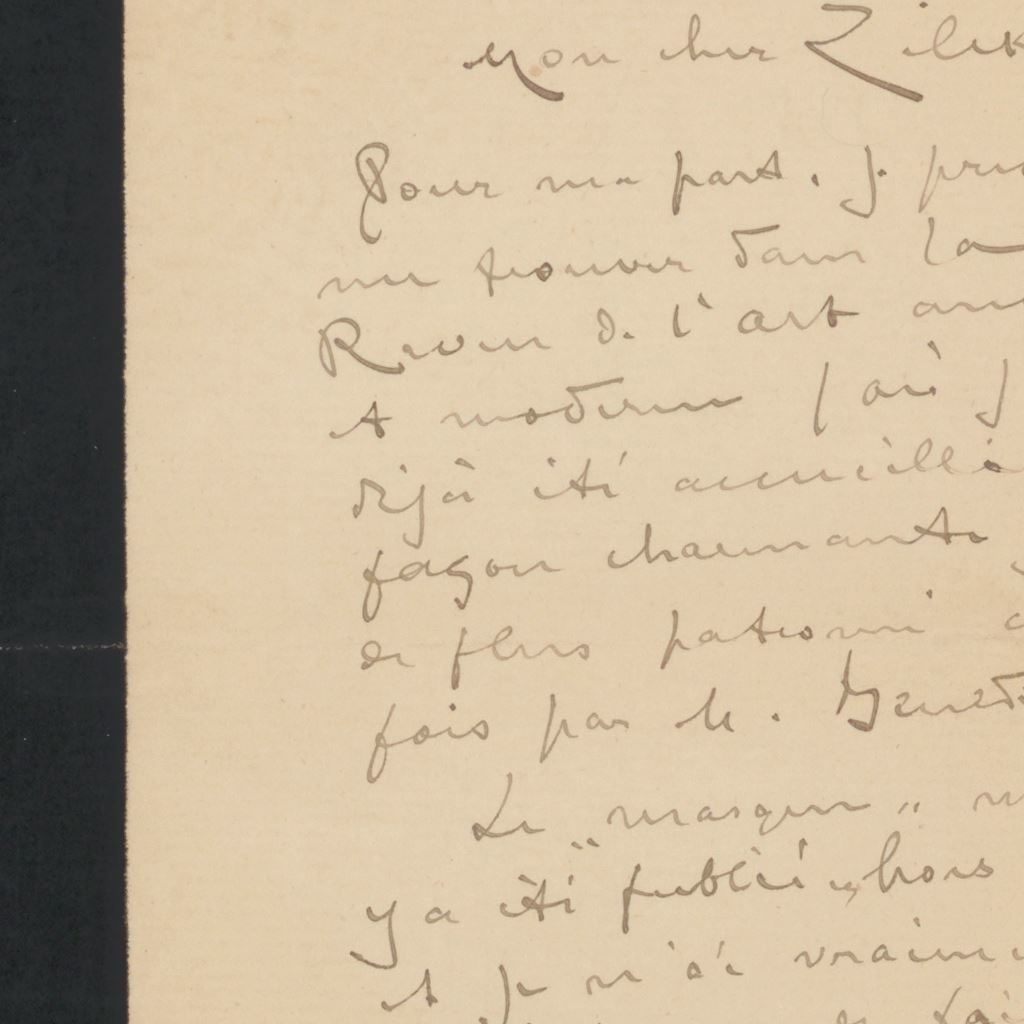 Mon cher Zilck
Pour ma part, je
me trouver dans la
Revue de l'art
et moderne (où j
déjà été accueilli
façon charmante
de plus patronné
fois par M. Bened
Le "masque"
y a été publié, hors
et je n'ai